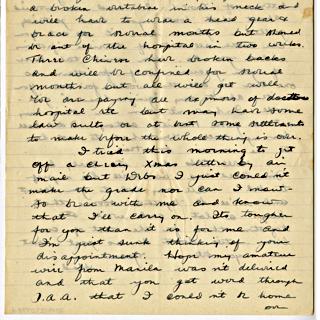 a broken vertabrae in his neck and
will have to wear a head gear &
brace for several months but should
be out of the hospital in two weeks.
Three Chinese have broken backs
and will be confined for several
months but all will get well.
We are paying all expenses of doctors
hospital etc but may have some
law suits or at best some settlements
to make before the whole thing is over.
I tried this morning to get
off a cheery Xmas letter by air
mail but Dibs I just couldn't
make the grade nor can I now.
So bear with me and know
that I'll carry on. Its tougher
for you than it is for me and
I'm just sunk thinking of your
disappointment. Hope my amateur
wire from Manila wasn't delivered
and that you got word through
P.A.A. that I couldn't be home
over